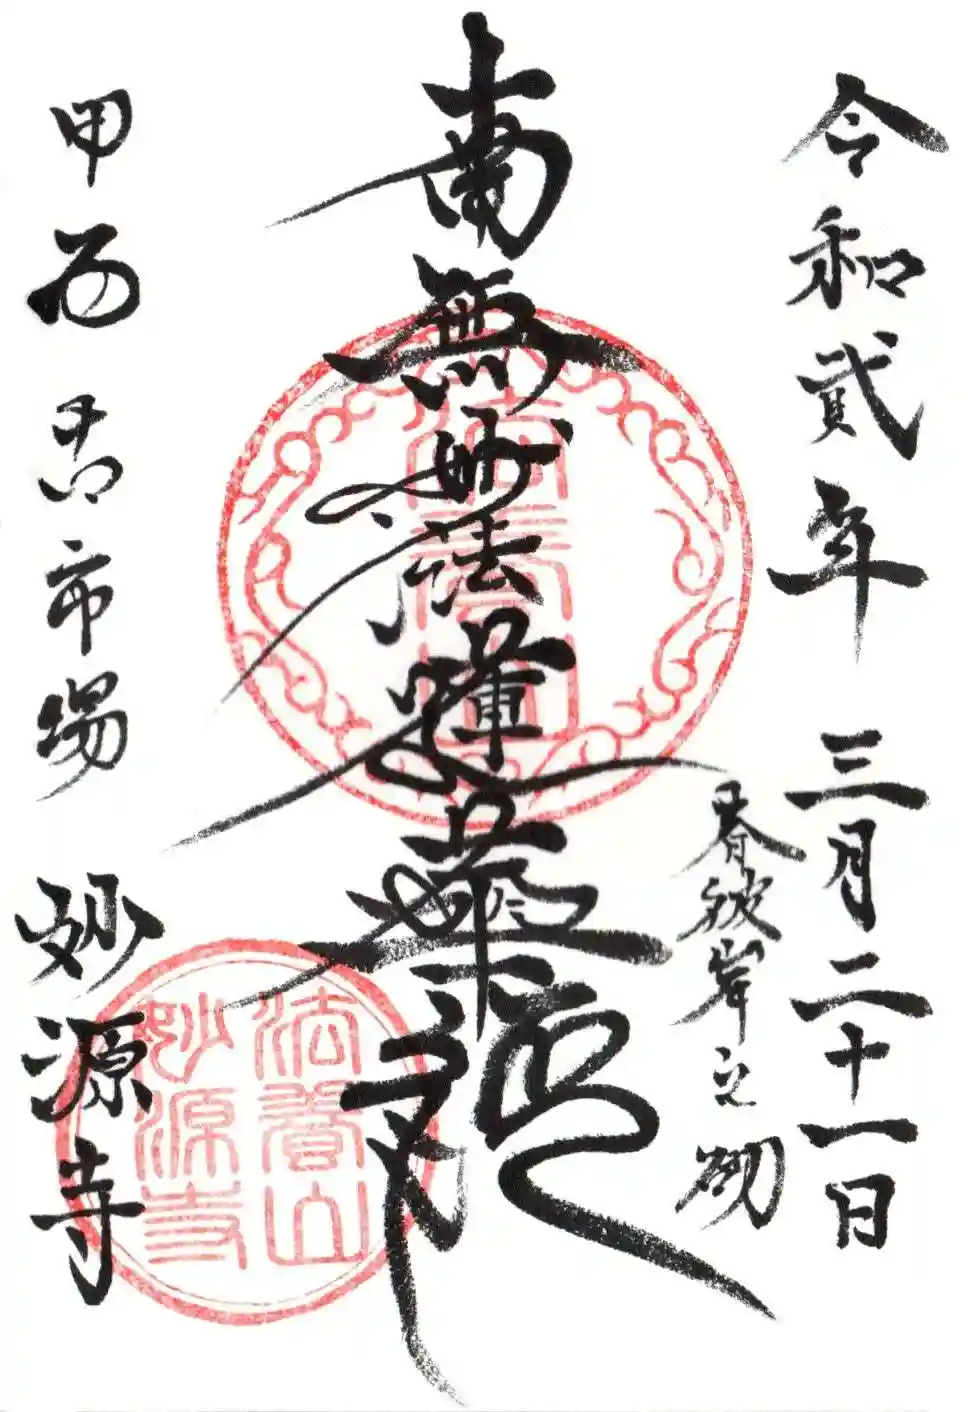 令和貳年 三月二十一日
春彼岸之砌
南無妙法蓮華経
甲西 古市場 妙源寺
法養山
妙源寺